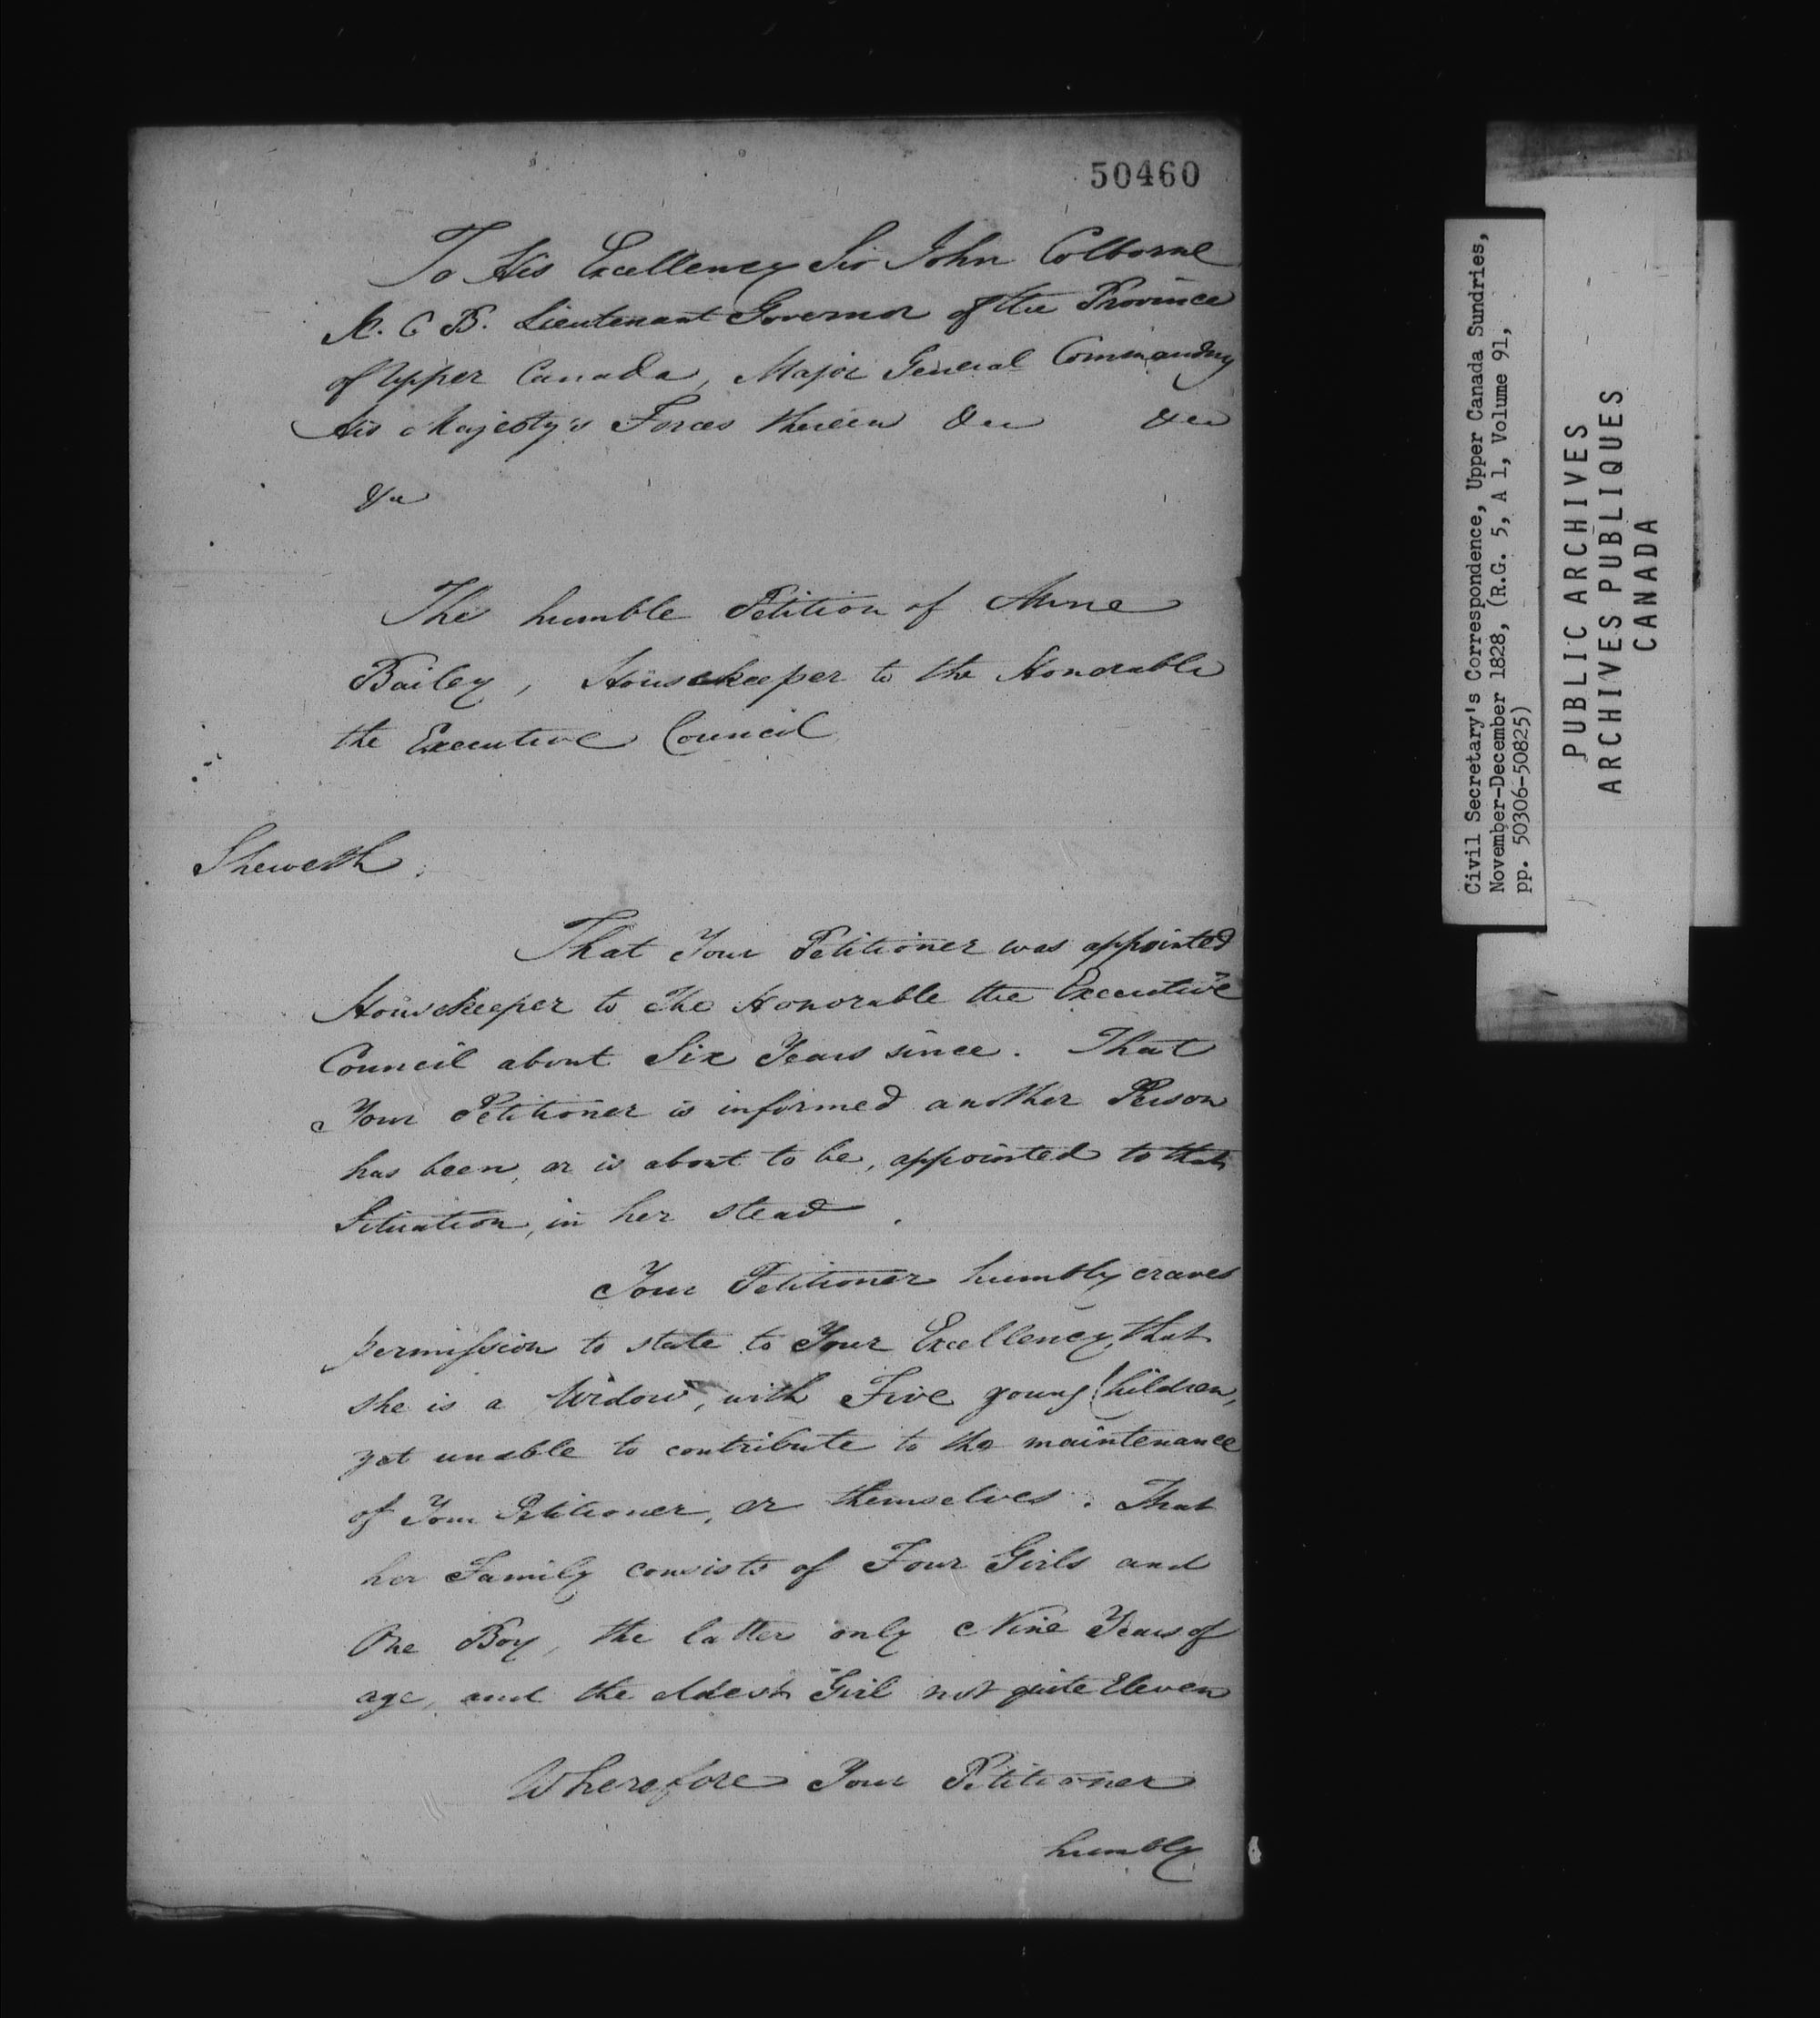 50460
To His Excellency Sir John Colborne
K. C B. Lieutenant Governor of the Province
of Upper Canada, Major General Commanding
His Majesty's Forces therein &c &c
&c
The humble Petition of Anne
Bailey, Housekeeper to the Honorable
the Executive Council
Sheweth:
That Your Petitioner was appointed
Housekeeper to the Honorable the Executive
Council about Six Years since. That
Your Petitioner is informed another Person
has been, or is about to be, appointed to that
Situation, in her stead.
Your Petitioner humbly craves
permission to state to Your Excellency, that
she is a Widow, with Five young Children,
yet unable to contribute to the maintenance
of Your Petitioner, or themselves. That
her Family consists of Four Girls and
One Boy, the latter only Nine Years of
age, and the eldest Girl not quite Eleven
Wherefore Your Petitioner
humbly
Civil Secretary's Correspondence, Upper Canada Sundries,
November-December 1828, (R.G. 5, A 1, Volume 91,
pp. 50306-50825)
PUBLIC ARCHIVES
ARCHIVES PUBLIQUES
CANADA